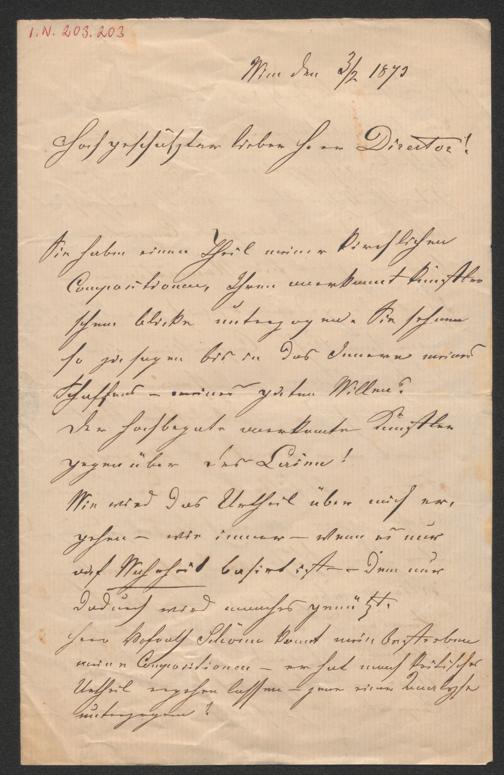 I.N. 203.203
Wien den 3/2 1873
Hochgeschätzter lieber Herr Director!
Sie haben einen Theil meiner kirchlichen
Compositionen, Ihrem anerkannt künstleri
schem Blicke unterzogen. Sie sehen
so zu sagen bis in das Innere meines
Schaffens – meines guten Willens.
Der hochbegabte anerkannte Künstler
gegenüber des Laien!
Wie wird das Urtheil über mich er,
gehen – wie immer – wenn es nur
auf Wahrheit basirt ist – Denn nur
dadurch wird manches genützt.
Herr Hofrath kennt mein Bestreben
meine Compositionen – er hat auch kritisches
Urtheil ergehen lassen – jene einer Analyse
unterzogen!